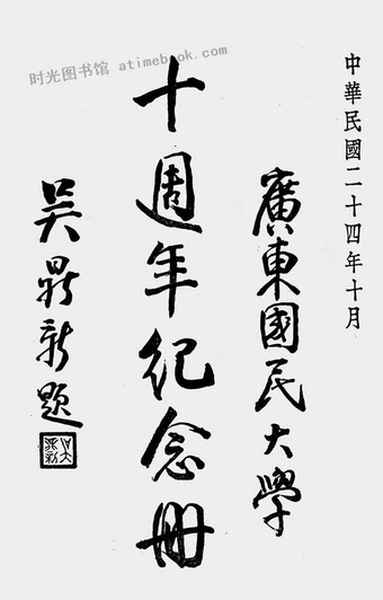 时光图书馆 atimebook.com
中華民國二十四年十月
廣東國民大學
十週年紀念册
吳鼎新題